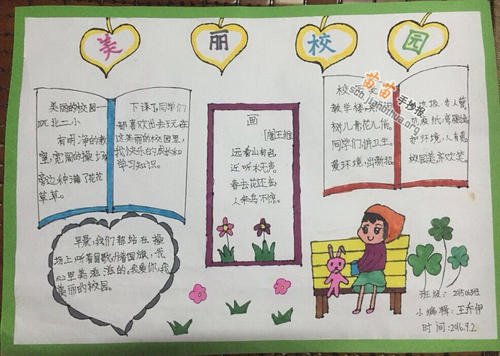 美 丽 校 园
苗苗手抄报
美丽的校园一
玩北二小
有明净的教
室,宽阔的操场
旁边种满了花花
草草。
下课了,同学们
都喜欢出去玩,在
这美丽的校园里,
我们快乐的成长和
学习知识。
画
[唐]王维
远看山有色
近听水无声
春去花还在
人来鸟不惊。
教学楼
树儿青花儿俏,
同学们讲卫生。
爱环境,出新招
护环境,人人夸
校园美欢笑。
早晨,我们都站在操
场上,听着国歌,升着国旗,我
心里美滋滋的。我爱你,我
美丽的校园。
班级:
小编辑:王乔伊
时间:2016.9.2